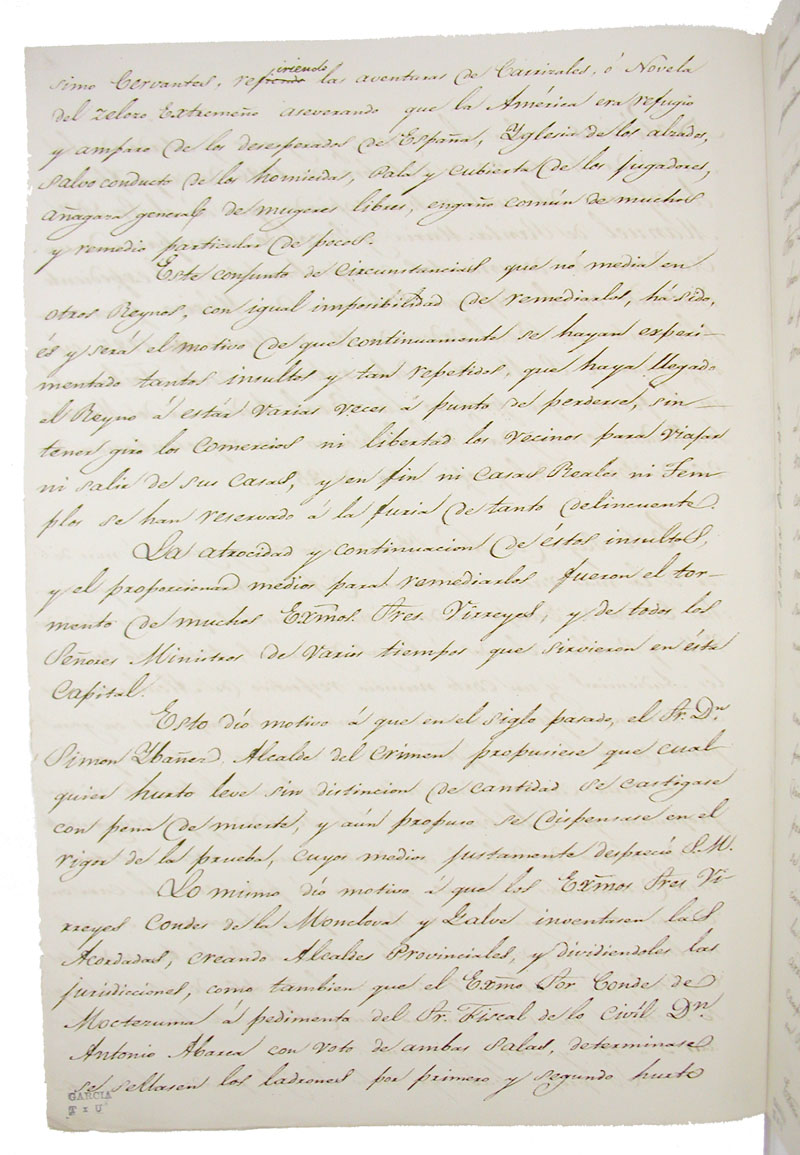 simo Cervantes, refiriendo las aventuras de Carrizales, ó Novela
del zeloso Extremeño aseverando que la América era refugio
y amparo de los desesperados de España, Yglesia de los alzados,
salvo conducto de los homicidas, Pala y cubierta de los jugadores,
añagaza general de mugeres libres, engaño común de muchos
y remedio particular de pocos.
Este conjunto de circunstancias que nó media en
otros Reynos, con igual imposibilidad de remediarlos, há sido,
és y será el motivo de que continuamente se hayan experi-
mentado tantos insultos y tan repetidos, que haya llegado
el Reyno á estár varias veces á punto de perderse, sin
tener giro los Comercios ni libertad los vecinos para viajar
ni salir de sus casas, y en fin ni Casas Reales ni Tem-
plos se han reservado á la furia de tanto delincuente.
La atrocidad y continuacion de éstos insultos,
y el proporcionar medios para remediarlos fueron el tor-
mento de muchos Exmos. Sres. Virreyes, y de todos los
Señores Ministros de varios tiempos que sirvieron en ésta
Capital.
Esto dio motivo á que en el siglo pasado, el Sr. Dn.
Simon Ybañez Alcalde del Crimen propusiese que cual
quier hurto leve sin distincion de cantidad se castigase
con pena de muerte, y aún propuso se dispensase en el
rigor de la prueba, cuyos medios justamente despreció S.M.
Lo mismo dio motivo á que los Exmos Sres Vi-
rreyes Condes de la Monclova y Galve inventasen las
Acordadas, creando Alcaldes Provinciales, y dividiendoles las
jurisdicciones, como tambien que el Exmo Sor Conde de
Moctezuma á pedimento del Sr. Fiscal de lo Civíl Dn.
Antonio Abarca con voto de ambas Salas, determinase
se sellasen los ladrones por primero y segundo hurto
GARCIA